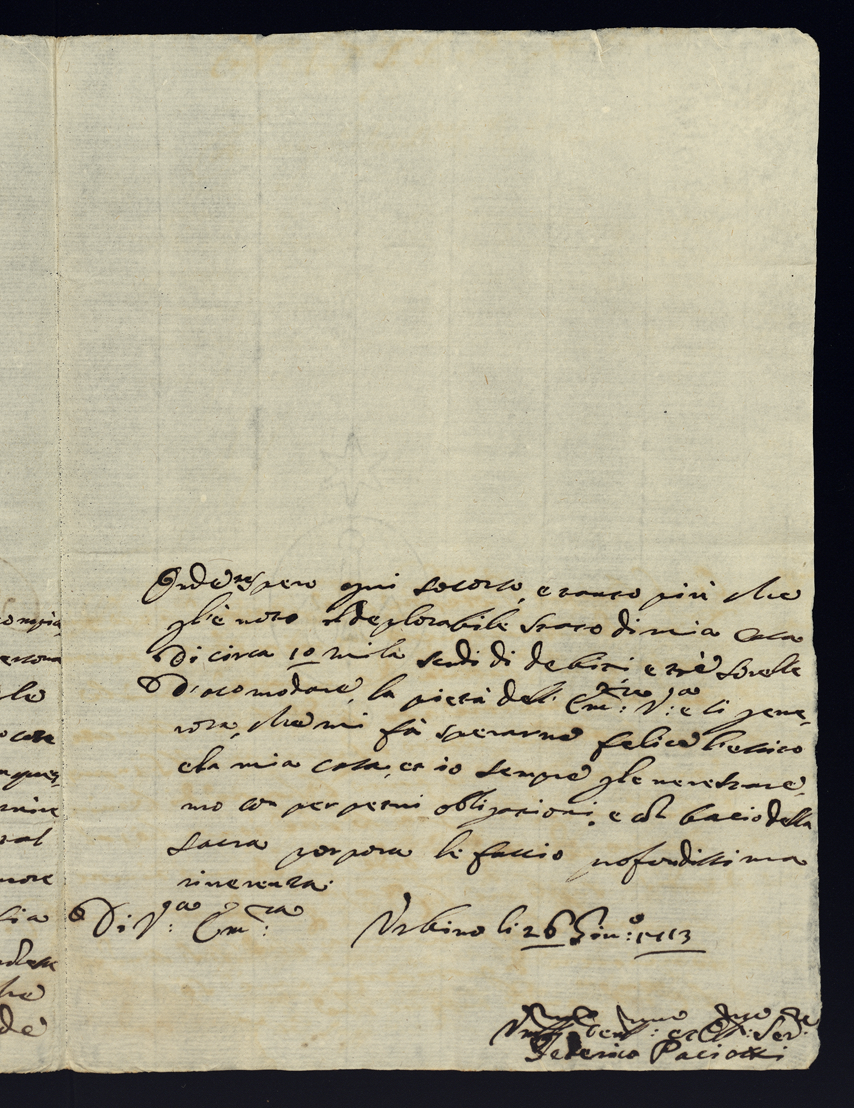 Onde spero ogni socorso, e tanto più che
gl'è noto il deplorabile stato di mia Casa
di circa 10 mila scudi di debiti e trè sorelle
d'acomodare, la pietà dell' Em:za V:ra e si gene-
rosa, che mi fà sperarne felice l'essito
e la mia casa, et io sempre gle ne restare-
mo con perpetui obligazioni, e col bacio della
sacra porpora le faccio profondissima
riverenza.
Di V:ra Em:za
Urbino li 26 Giu:o 1713
et Ser:
Federico Paciotti
ompia
le
o cosa
al
lia
he
de